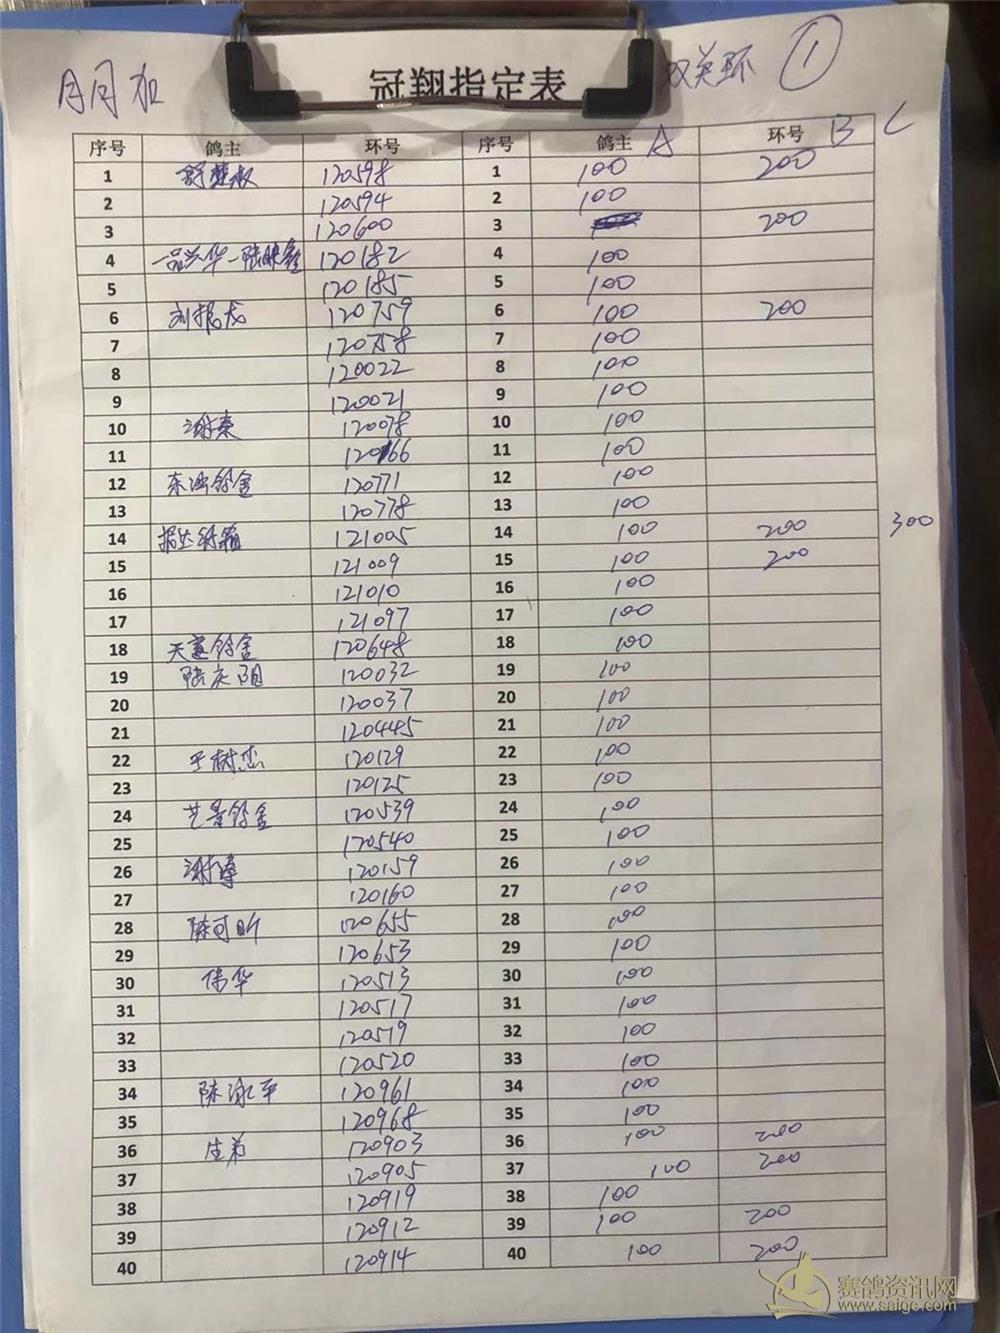 月月加 冠翔指定表 双关环 ①
序号 鸽主 环号 序号 鸽主 A 环号 B C
1 120598 1 100 200
2 120594 2 100
3 120600 3 200
4 120182 4 100
5 120185 5 100
6 刘根龙 120759 6 100 200
7 120758 7 100
8 120022 8 100
9 120021 9 100
10 谢秦 120078 10 100
11 120166 11 100
12 120771 12 100
13 120778 13 100
14 121005 14 100 200 300
15 121009 15 100 200
16 121010 16 100
17 121097 17 100
18 120648 18 100
19 陆庆阳 120032 19 100
20 120037 20 100
21 120445 21 100
22 于树杰 120129 22 100
23 120125 23 100
24 120539 24 100
25 120540 25 100
26 120159 26 100
27 120160 27 100
28 陈可昕 120655 28 100
29 120653 29 100
30 伟华 120513 30 100
31 120517 31 100
32 120519 32 100
33 120520 33 100
34 陈泳平 120961 34 100
35 120968 35 100
36 生弟 120903 36 100 200
37 120905 37 100 200
38 120919 38 100
39 120912 39 100 200
40 120914 40 100 200
赛鸽资讯网
www.saige.com